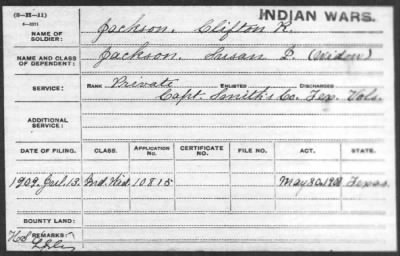 (3-HI-11)
INDIAN WARS.
NAME OF SOLDIER: Jackson, Clifton R.
NAME AND CLASS OF DEPENDENT: Jackson, Susan L. (Widow)
SERVICE: RANK Private ENLISTED DISCHARGED
Capt. Smith's Co. Tex. Vols.
ADDITIONAL SERVICE:
DATE OF FILING. CLASS. APPLICATION No. CERTIFICATE NO. FILE NO. ACT. STATE.
1909. 13. Ind. Wid. 10815 May 30. 1908 Texas
BOUNTY LAND:
REMARKS: